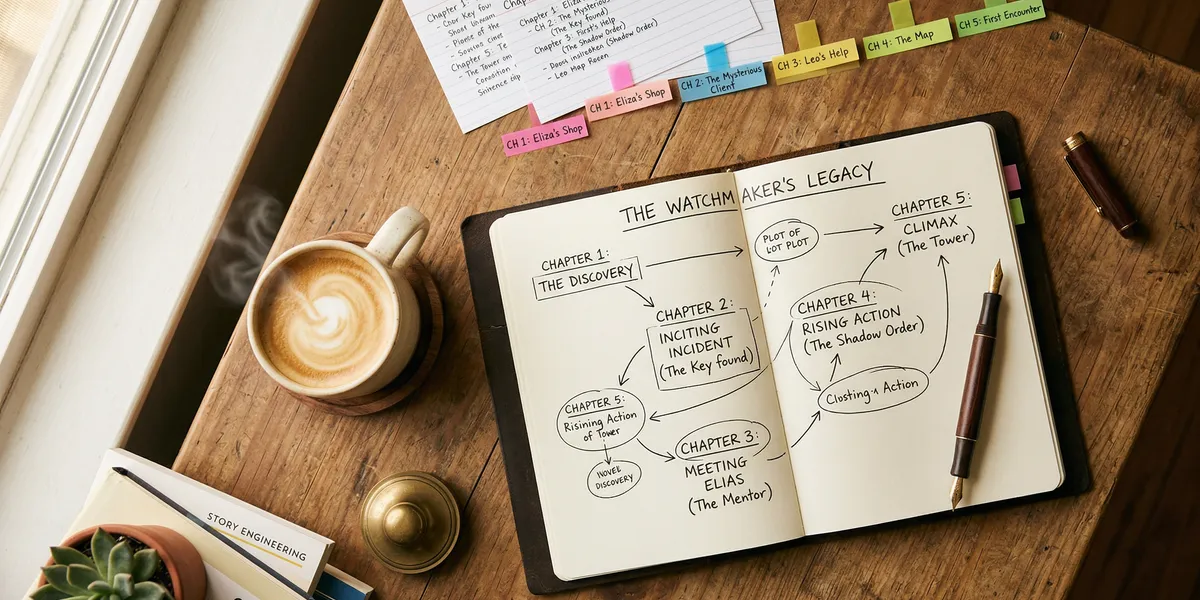 Chapter 1:
Chapter 5: Te
Chap
Chapter 1: Eliza's Shop
- CH 2: The Mysterious
(The Key found)
Chapter 3: First's Help
(The Shadow Order)
(Shadow Order)
- Leo Map
CH 1: Eliza's Shop
CH 1: Eliza's Shop
CH 2: The Mysterious
Client
CH 3: Leo's Help
CH 4: The Map
CH 5: First Encounter
THE WATCHM AKER'S LEGACY
CHAPTER 1:
THE DISCOVERY
CHAPTER 2:
INCITING
INCIDENT
(The Key found)
CHAPTER 5:
Risining Action
of Tower
NOVEL
DISCOVERY
CHAPTER 3:
MEETING
ELIAS
(The Mentor)
PLOT OF
LOT PLOT
CHAPTER 5:
CLIMAX
(The Tower)
CHAPTER 4:
RISING ACTION
(The Shadow Order)
Action
STORY ENGINEERING